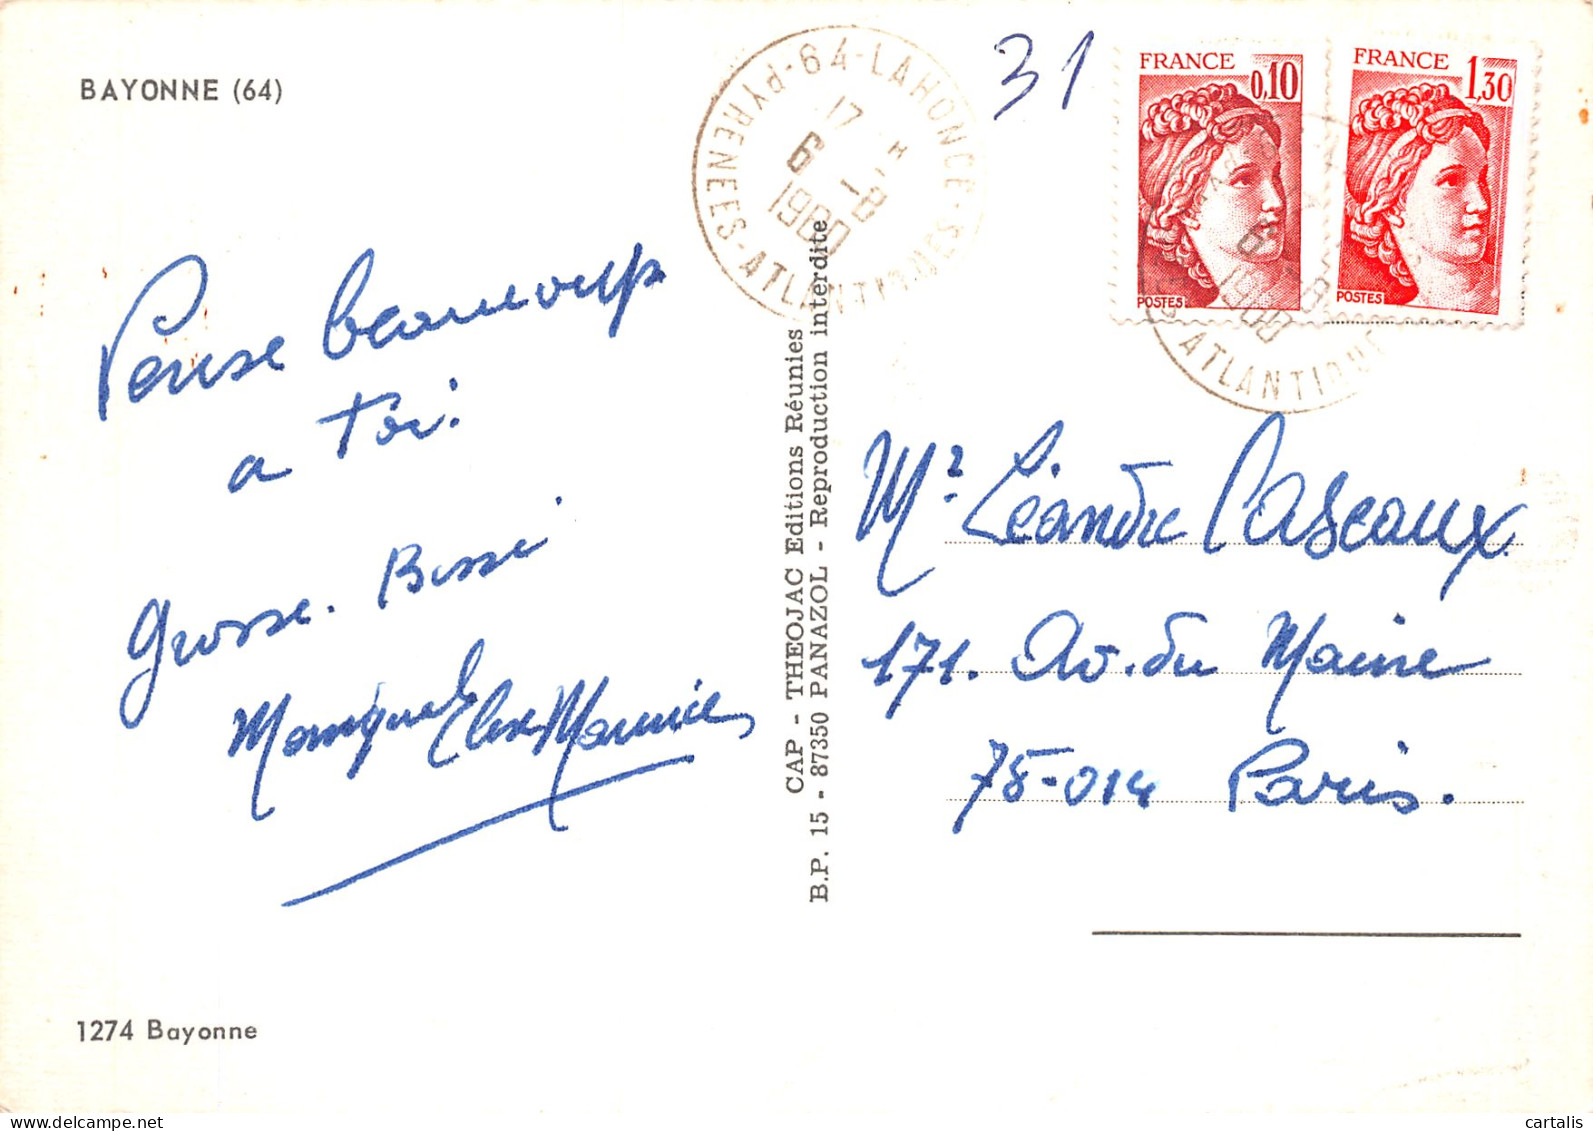 BAYONNE (64)
Pense beaucoup
a toi.
Grosse. Bissi
1274 Bayonne
CAP - THEOJAC Editions Réunies
B.P. 15 - 87350 PANAZOL - Reproduction interdite
64-LAHONCE
PYRENEES-ATLANTIQUES
17 H
6 -8
1980
31
FRANCE
0,10
POSTES
FRANCE
1,30
POSTES
6 -8
1980
ATLANTIQUE
Mr. Léandre Caseaux
171. Av. du Maine
75-014 Paris.
cartalis